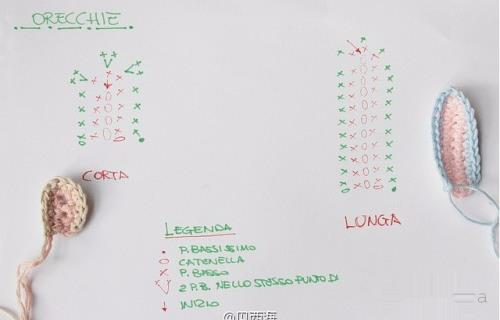 ORECCHIE
CORTA
LUNGA
LEGENDA
P. BASSISSIMO
CATENELLA
P. BASSO
2 P.B. NELLO STESSO PUNTO DI
INIZIO